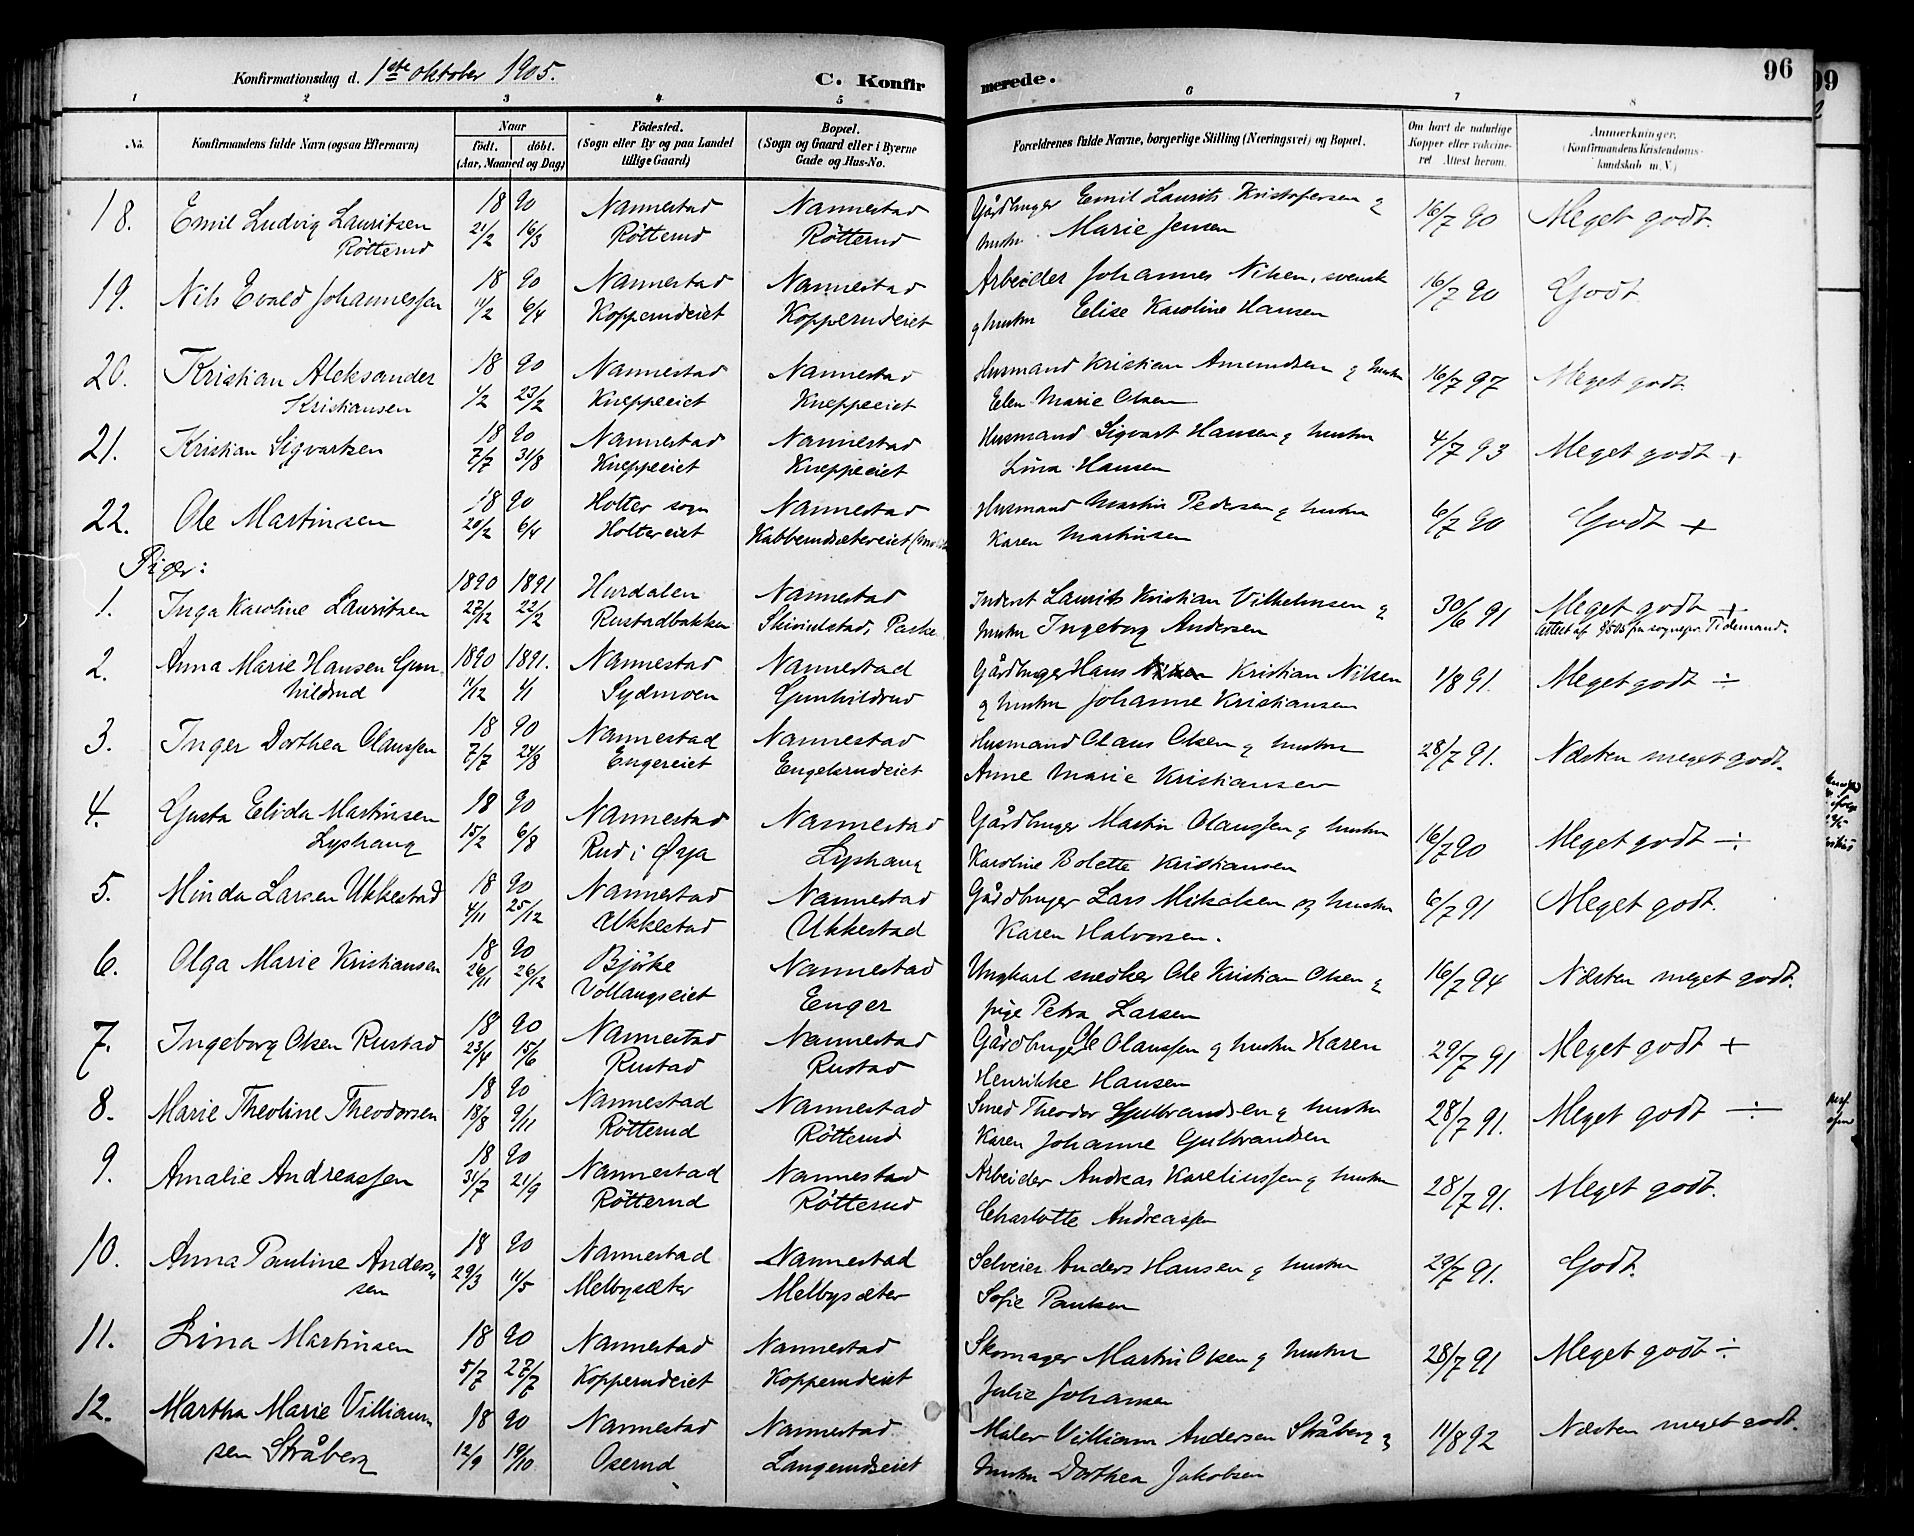 Konfirmationsdag d. 1ste oktober 1905. C. Konfir merede. 96
99
1 2 3 4 5 6 7 8
No. Konfirmandens fulde Navn (ogsaa Efternavn) Naar födt. döbt. (Aar, Maaned og Dag) Födested. (Sogn eller By og paa Landet tillige Gaard) Bopæl. (Sogn og Gaard eller i Byerne Gade og Hus-No. Forældrenes fulde Navne, borgerlige Stilling (Næringsvei) og Bopæl. Om havt de naturlige Kopper eller vakcineret Attest herom. Anmærkninger. (Konfirmandens Kristendomskundskab m. V.)
18. Emil Ludvig Lauritsen 18 90 Nannestad Nannestad Gårdbruger Emil Laurits Kristofersen og 16/7 90 Meget godt.
Rötterud 21/2 16/3 Rötterud Rötterud hustru Marie Jensen
19. Nils Evald Johannessen 18 90 Nannestad Nannestad Arbeider Johannes Nilsen, svensk 16/7 90 Godt.
11/2 6/4 Kopperudeiet Kopperudeiet og hustru Elise Karoline Hansen
20. Kristian Aleksander 18 90 Nannestad Nannestad Husmand Kristian Amundsen og hustru 16/7 97 Meget godt.
Kristiansen 1/2 23/2 Kneppeeiet Kneppeeiet Elen Marie Olsen
21. Kristian Sigvartsen 18 90 Nannestad Nannestad Husmand Sigvart Hansen og hustru 4/7 93 Meget godt +
7/7 31/8 Kneppeeiet Kneppeeiet Lina Hansen
22. Ole Martinsen 18 90 Holter sogn Nannestad Husmand Martin Pedersen og hustru 6/7 90 Godt +
20/2 6/4 Holtereiet Kabberudsætereiet Karen Martinsen
Piger:
1. Inga Karoline Lauritsen 1890 1891 Hurdalen Nannestad Inderst Laurits Kristian Vilhelmsen og 30/6 91 Meget godt +
27/12 22/2 Rustadbakken Skivulstad, hustru Ingeborg Andersen Attest af 9/5 05 fra sognepr. Tidemand.
2. Anna Marie Hansen Gun- 1890 1891. Nannestad Nannestad Gårdbruger Hans Kristian Nilsen 1/8 91. Meget godt ÷
hildrud 11/12 1/1 Sydmoen Gunhildrud og hustru Johanne Kristiansen
3. Inger Dorthea Olaussen 18 90 Nannestad Nannestad Husmand Olaus Olsen og hustru 28/7 91. Næsten meget godt.
7/7 24/8 Engereiet Engelsrudeiet Anne Marie Kristiansen
4. Gusta Elida Martinsen 18 90 Nannestad Nannestad Gårdbruger Martin Olaussen og hustru 16/7 90 Meget godt ÷
Lyshaug 15/2 6/8 Rud i Øija Lyshaug Karoline Bolette Kristiansen
5. Minda Larsen Ukkestad 18 90 Nannestad Nannestad Gårdbruger Lars Mikalsen og hustru 6/7 91 Meget godt.
4/11 25/12 Ukkestad Ukkestad Karen Halvorsen.
6. Olga Marie Kristiansen 18 90 Bjørke Nannestad Ungkarl snedker Ole Kristian Olsen og 16/7 94 Næsten meget godt.
26/11 26/12 Vollaugseiet Enger pige Petra Larsen
7. Ingeborg Olsen Rustad 18 90 Nannestad Nannestad Gårdbruger Ole Olaussen og hustru Karen 29/7 91 Meget godt +
23/4 15/6 Rustad Rustad Henrikke Hansen
8. Marie Theoline Theodorsen 18 90 Nannestad Nannestad Smed Theodor Gulbrandsen og hustru 28/7 91. Meget godt ÷
18/8 9/11 Rötterud Rötterud Karen Johanne Gulbrandsen
9. Amalie Andreassen 18 90 Nannestad Nannestad Arbeider Andreas Kareliussen og hustru 28/7 91. Meget godt.
31/7 21/9 Rötterud Rötterud Charlotte Andreassen
10. Anna Pauline Anders- 18 90 Nannestad Nannestad Selveier Anders Hansen og hustru 29/7 91. Godt.
sen 29/3 11/5 Melbysæter Melbysæter Sofie Paulsen
11. Lina Martinsen 18 90 Nannestad Nannestad Skomager Martin Olsen og hustru 28/7 91 Meget godt ÷
5/7 27/7 Kopperudeiet Kopperudeiet Julie Johansen
12. Martha Marie Villiam- 18 90 Nannestad Nannestad Maler Villiam Andersen Stråberg og 11/8 92 Næsten meget godt.
sen Stråberg 12/9 19/10 Oserud Langerudseiet hustru Dorthea Jakobsen